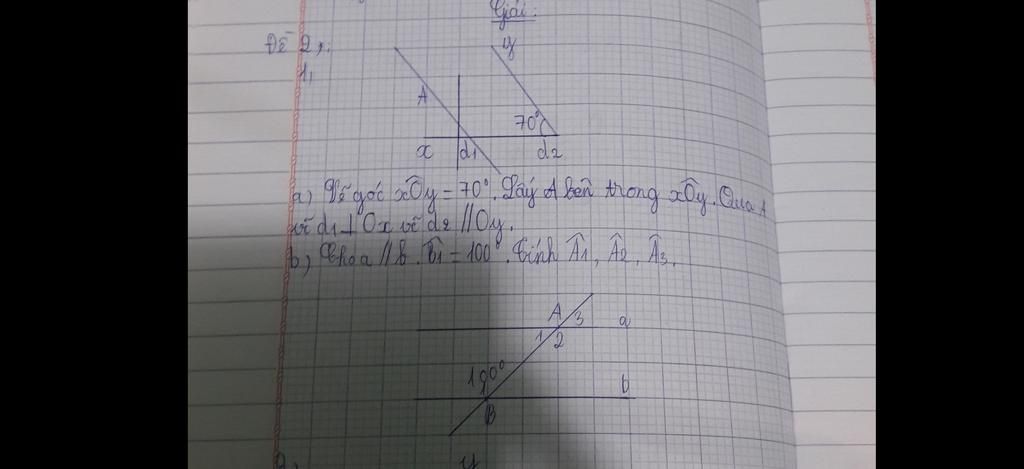 Giải:
Đề 2,:
1,
y
A
70°
x d1 d2
a) Vẽ góc xÔy = 70°. Lấy A bên trong xÔy. Qua A
vẽ d1 ⊥ Ox vẽ d2 // Oy.
b) Cho a // b. B̂1 = 100°. Tính Â1, Â2, Â3.
A 3 a
1 2
100° b
B
y